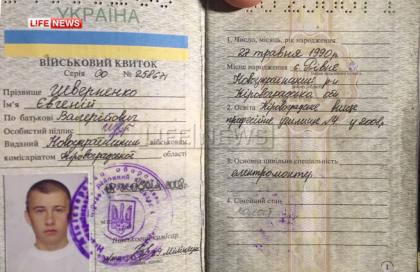 LIFE NEWS
УКРАЇНА
ВІЙСЬКОВИЙ КВИТОК
Серія ОО № 258671
Прізвище
Ім'я Євгеній
По батькові Валерійович
Особистий підпис
Виданий Новоукраїнським військовим
комісаріатом Кіровоградської області
LIFE NEWS
1. Число, місяць, рік народження
27 травня 1990 р.
Місце народження с. Рівне
Новоукраїнський р-н
Кіровоградська обл
2. Освіта Кіровоградське вище
професійне училище №4 у 2008р.
3. Основна цивільна спеціальність
електромонтер
4. Сімейний стан
холост
1